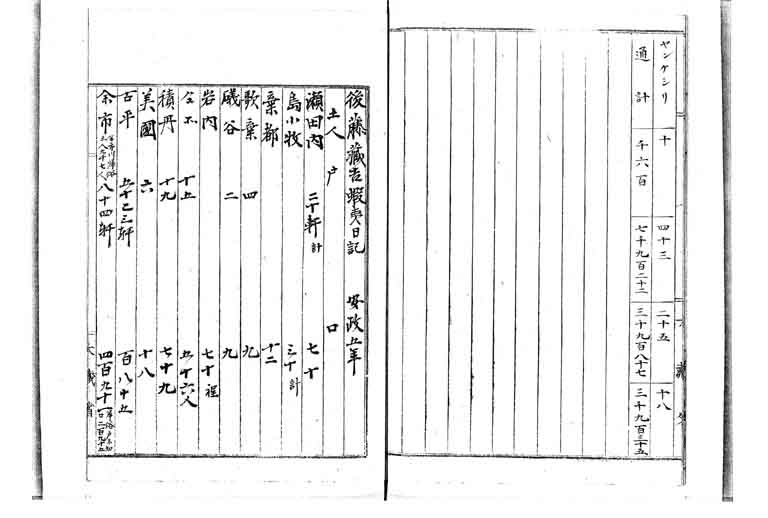 ヤンケシリ 十 四十三 二十五 十八
通計 千六百 七千九百二十二 三千九百八十七 三千九百三十五
後藤藏吉蝦夷日記 安政五年
土人 戸 口
瀬田内 二十軒計 七十
島小牧 三十計
壽都 十二
歌棄 四 九
磯谷 二 九
岩内 七十程
十五 五十六人
積丹 十九 七十九
美國 六 十八
古平 五十三軒 百八十五
余市 八十四軒 四百九十